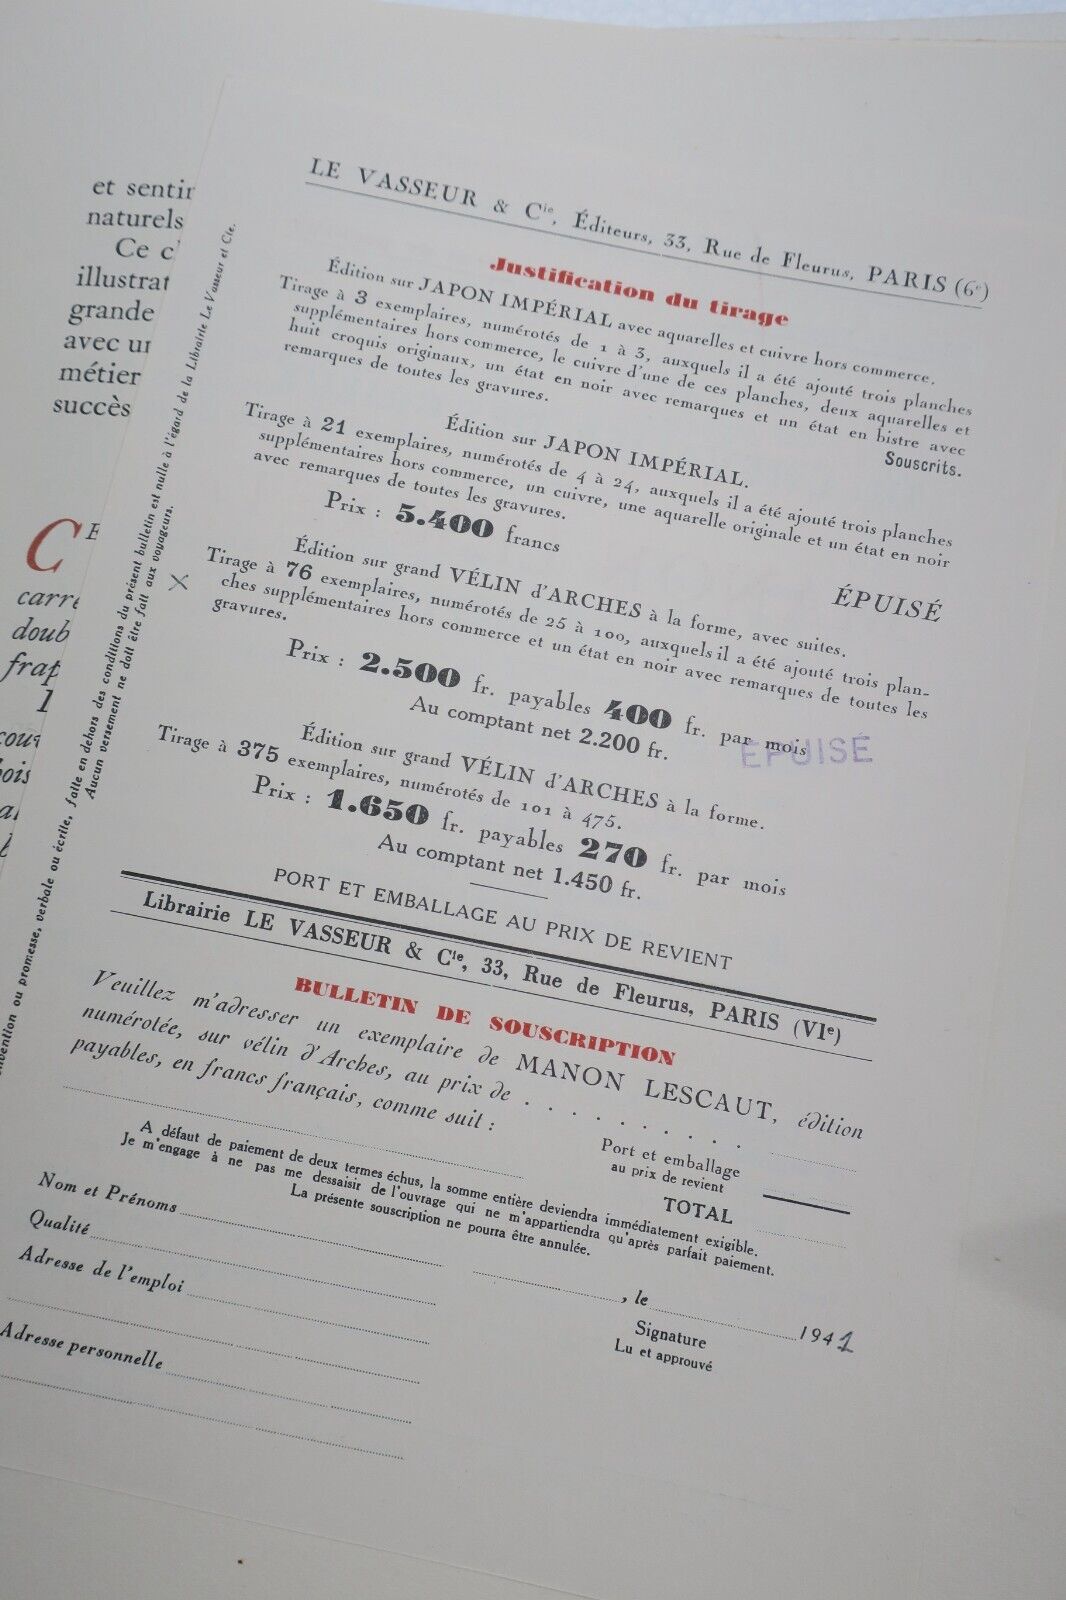 et sentir
naturels
Ce c
illustrat
grande
avec un
métier
succès
C
E
carré
doub
frap
1
couv
bois
nvention ou promesse, verbale ou écrite, faite en dehors des conditions du présent bulletin est nulle à l'égard de la Librairie Le Vasseur et Cie.
Aucun versement ne doit être fait aux voyageurs.
LE VASSEUR & Cie, Éditeurs, 33, Rue de Fleurus, PARIS (6e)
Justification du tirage
Édition sur JAPON IMPÉRIAL avec aquarelles et cuivre hors commerce.
Tirage à 3 exemplaires, numérotés de 1 à 3, auxquels il a été ajouté trois planches
supplémentaires hors commerce, le cuivre d'une de ces planches, deux aquarelles et
huit croquis originaux, un état en noir avec remarques et un état en bistre avec
remarques de toutes les gravures.
Souscrits.
Édition sur JAPON IMPÉRIAL.
Tirage à 21 exemplaires, numérotés de 4 à 24, auxquels il a été ajouté trois planches
supplémentaires hors commerce, un cuivre, une aquarelle originale et un état en noir
avec remarques de toutes les gravures.
Prix : 5.400 francs
ÉPUISÉ
Édition sur grand VÉLIN d'ARCHES à la forme, avec suites.
Tirage à 76 exemplaires, numérotés de 25 à 100, auxquels il a été ajouté trois plan-
ches supplémentaires hors commerce et un état en noir avec remarques de toutes les
gravures.
Prix : 2.500 fr. payables 400 fr. par mois
Au comptant net 2.200 fr.
EPUISÉ
Édition sur grand VÉLIN d'ARCHES à la forme.
Tirage à 375 exemplaires, numérotés de 101 à 475.
Prix : 1.650 fr. payables 270 fr. par mois
Au comptant net 1.450 fr.
PORT ET EMBALLAGE AU PRIX DE REVIENT
Librairie LE VASSEUR & Cie, 33, Rue de Fleurus, PARIS (VIe)
BULLETIN DE SOUSCRIPTION
Veuillez m'adresser un exemplaire de MANON LESCAUT, édition
numérotée, sur vélin d'Arches, au prix de . . . . . . . . .
payables, en francs français, comme suit :
Port et emballage
au prix de revient
TOTAL
A défaut de paiement de deux termes échus, la somme entière deviendra immédiatement exigible.
Je m'engage à ne pas me dessaisir de l'ouvrage qui ne m'appartiendra qu'après parfait paiement.
La présente souscription ne pourra être annulée.
Nom et Prénoms
Qualité
Adresse de l'emploi
Adresse personnelle
, le 1941
Signature
Lu et approuvé